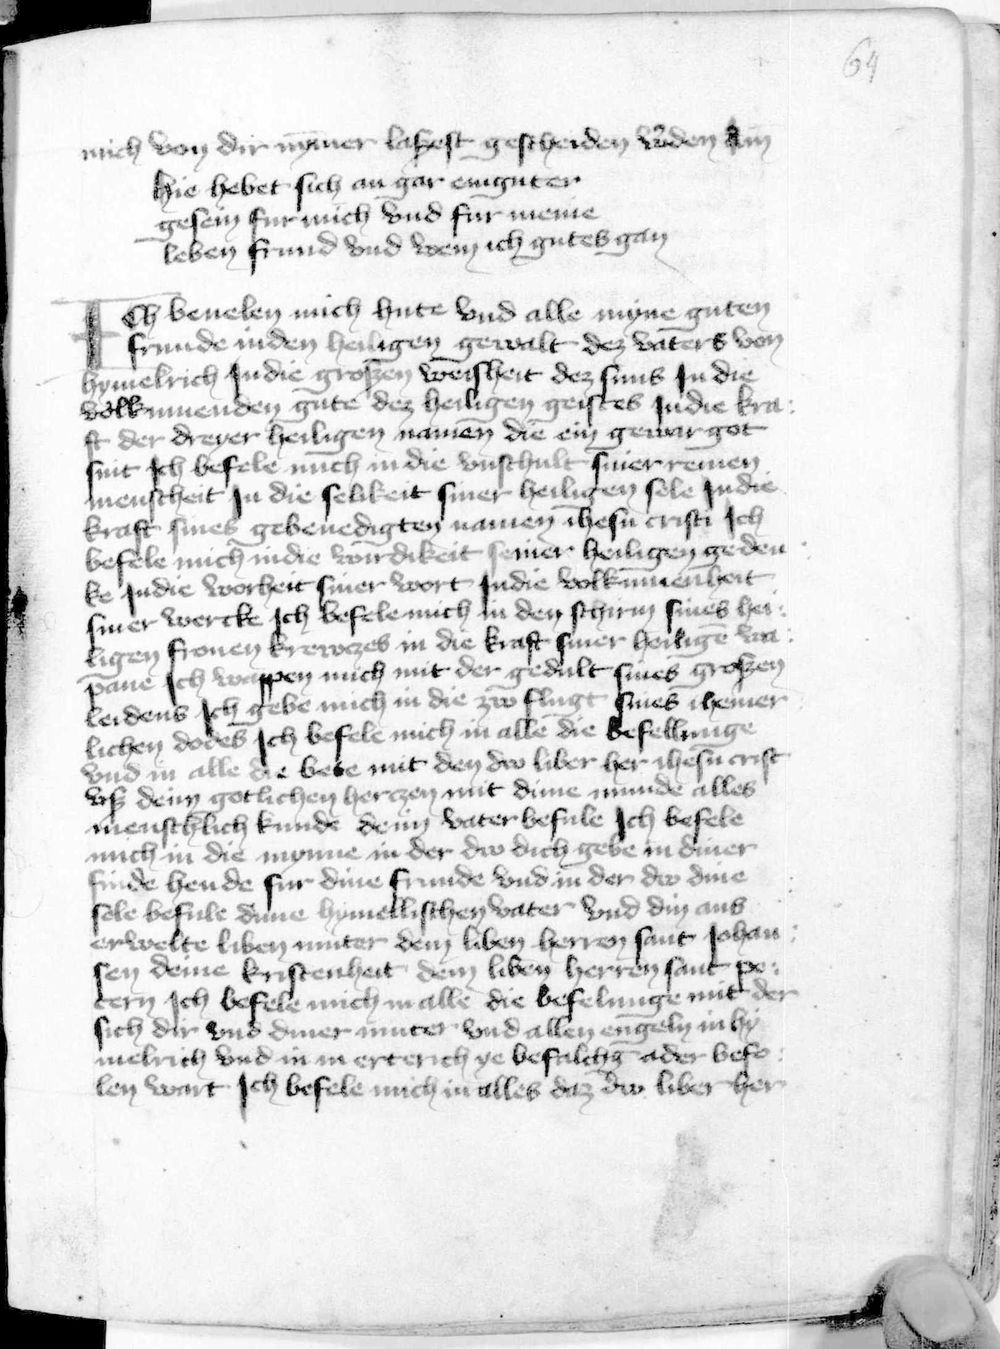 64
mich von dir nymer laßest gescheiden werden Am̄
hie hebet sich an gar ein guter
gesein fur mich vnd fur meine
leben frund vnd wem ich gutes gan
ICh beuelen mich hute vnd alle myne guten
frunde in den heiligen gewalt dez vaters von
hymelrich In die großen weisheit dez suns In die
volkumenden gute dez heiligen geistes In die kra:
ft der dreyer heiligen namen die ein gewar got
sint Ich befele mich in die vnschult siner reinen
menscheit In die selikeit siner heiligen sele In die
kraft sines gebenedigten namen ihesu cristi Ich
befele mich in die wirdikeit seiner heiligen geden:
ke In die worheit siner wort In die volkumenheit
siner wercke Ich befele mich in den schirm sines hei:
ligen fronen krewczes in die kraft siner heiligē wa:
pane Ich wappen mich mit der gedult sines großen
leidens Ich gebe mich in die zw flugt sines ihemer
lichen dodes Ich befele mich in alle die befellunge
vnd in alle die bete mit den dw liber her ihesu crist
vß deim gotlichen herczen mit dime munde alles
menschlich kunde deim vater befule Ich befele
mich in die mynne in der dw dich gebe in diner
finde hende fur dine frunde vnd in der dw dine
sele befule dime hymellischen vater vnd din aus
erwelte liben muter dem liben herren sant Johan:
sen deine kristenheit dem liben herren sant pe:
tern Ich befele mich in alle die befelunge mit der
sich dir vnd diner muter vnd allen engeln in hy
melrich vnd in in erterich ye befalchē ader befo:
len wart Ich befele mich in alles daz dw liber her